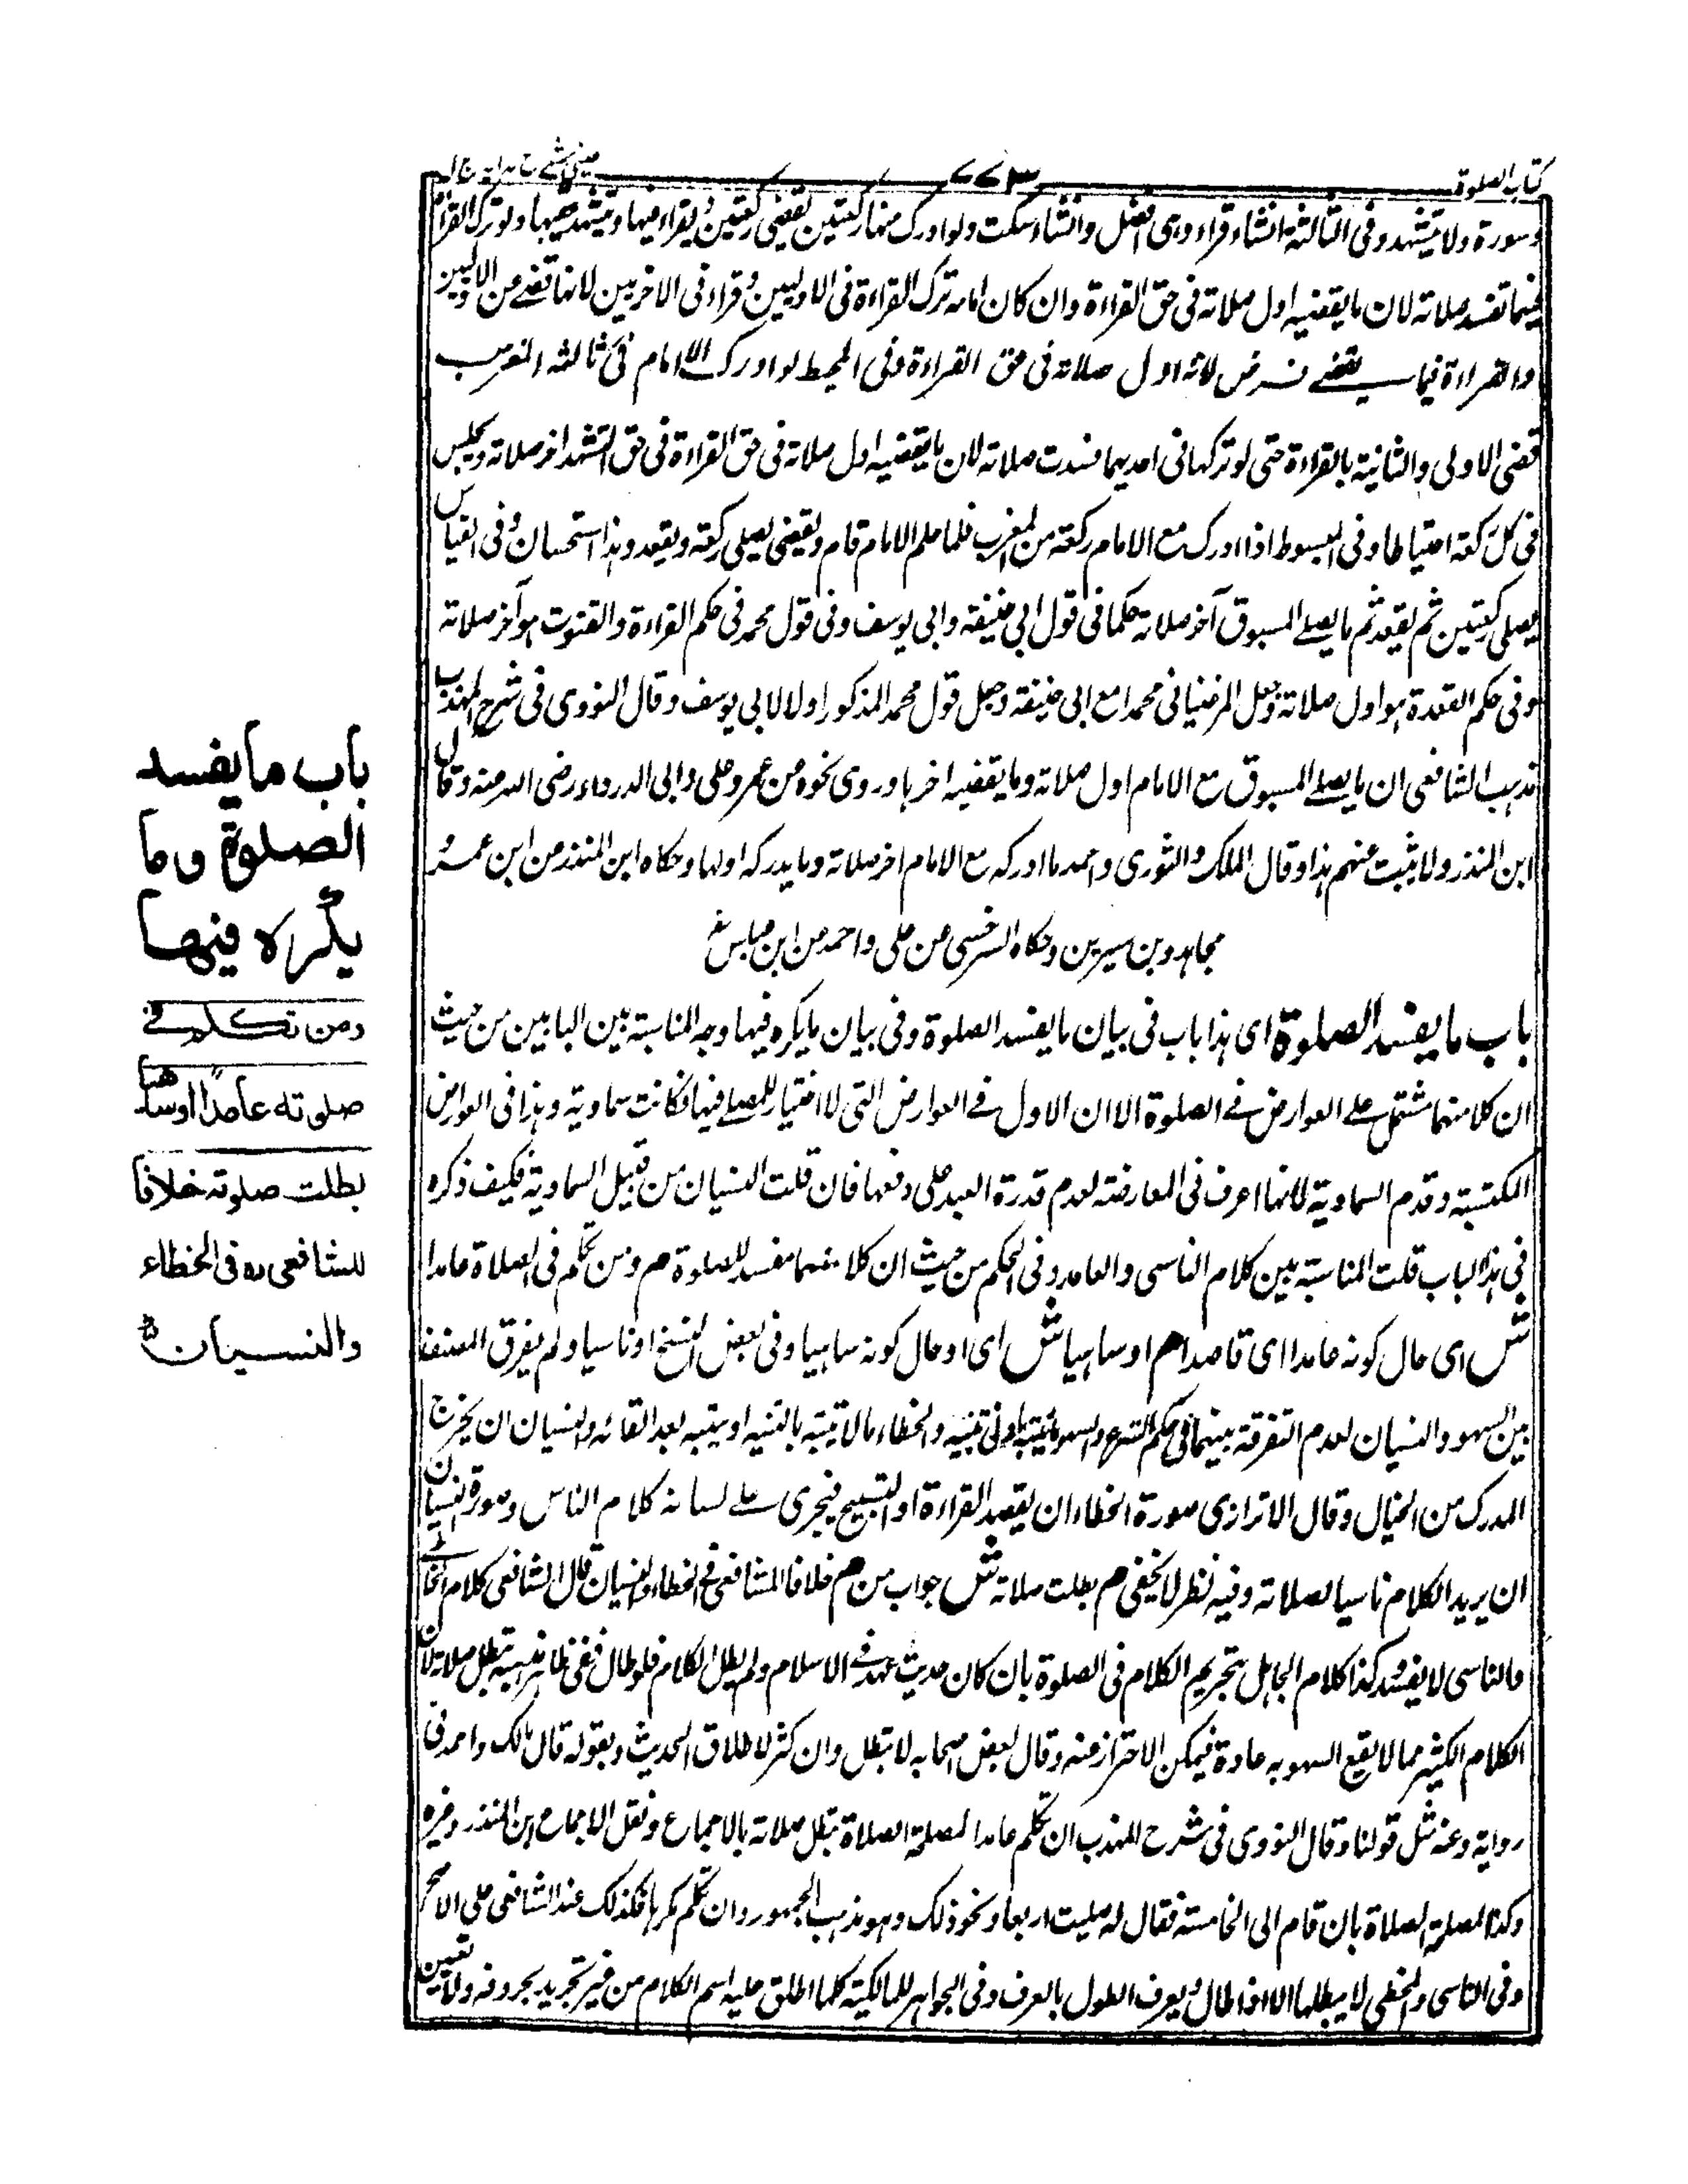 كتاب الصلوة
٧٧٣
عيني شرح هداية ج ١
وسورة ولا يتشهد وفى الثالثة انشاء قراء وهى افضل وانشاء سكت ولو ادرك منها ركعتين يقضي ركعتين يقراء فيها ويتشهد فيهما ولو ترك القراءة
فيهما تفسد صلاته لان ما يقضيه اول صلاته فى حق القراءة وان كان امامه ترك القراءة فى الاوليين وقراء فى الاخريين لانها تقضے من الاوليين
والقراءة فيما يقضے فرض لانه اول صلاته فى حق القراءة وفى المحيط لو ادرك الامام فى ثالثة المغرب
قضى الاولى والثانية بالقراءة حتى لو تركها فى احديهما فسدت صلاته لان ما يقضيه اول صلاته فى حق القراءة فى حق التشهد اخر صلاته ويجلس
فى كل ركعة احتياطا وفى المبسوط اذا ادرك مع الامام ركعة من المغرب فلما سلم الامام قام ويقضي يصلى ركعة ويقعد وهذا استحسان وفى القياس
يصلى ركعتين ثم يقعد ثم ما يصلے المسبوق آخر صلاته حكما فى قول ابي حنيفة وابي يوسف وفى قول محمد فى حكم القراءة والقنوت هو آخر صلاته
وفى حكم القعدة هو اول صلاته وجعل المرغينانى محمدا مع ابي حنيفة وجعل قول محمد المذكور اولا لابي يوسف وقال النووى فى شرح المهذب
مذهب الشافعى ان ما يصلے المسبوق مع الامام اول صلاته وما يقضيه اخرها وروى نحوه عن عمر وعلى وابى الدرداء رضى الله عنه وقال
ابن المنذر ولا يثبت عنهم هذا وقال الملك والثورى واحمد ما ادركه مع الامام اخر صلاته وما يدركه اولها وحكاه ابن المنذر من ابن عمر و
مجاهد وبن سيرين وحكاه السرخسى عن على واحمد من ابن عباس
باب ما يفسد الصلوة اى هذا باب فى بيان ما يفسد الصلوة وفى بيان ما يكره فيها وجه المناسبة بين البابين من حيث
ان كلا منهما مشتمل علے العوارض فے الصلوة الا ان الاول فے العوارض التى لا اختيار للمصلے فيها فكانت سماوية وهذا فى العوارض
المكتسبة وقدم السماوية لانها اعرف فى المعارضة لعدم قدرة العبد على دفعها فان قلت النسيان من قبيل السماوية فكيف ذكره
فى هذا الباب قلت المناسبة بين كلام الناسى والعامد وفى الحكم من حيث ان كلا منهما مفسد للصلوة م ومن تكلم فى الصلاة عامدا
ش اى حال كونه عامدا اى قاصدا م او ساهيا ش اى او حال كونه ساهيا وفى بعض النسخ او ناسيا ولم يفرق المصنف
بين السهو والنسيان لعدم التفرقة بينهما فى حكم الشرع والسهو ما يتنبه بادنى تنبيه والخطاء ما لا يتنبه بالتنبيه او يتنبه بعد اتقانه والنسيان ان يخرج
المدرك من الخيال وقال الاترازى صورة الخطاء ان يقصد القراءة او التسبيح فيجرى علے لسانه كلام الناس وصورة النسيان
ان يريد الكلام ناسيا لصلاته وفيه نظر لا يخفى م بطلت صلاته ش جواب من م خلافا للشافعى فے الخطاء والنسيان قال الشافعى كلام الخاطے
والناسى لا يفسد وكذا كلام الجاهل بتحريم الكلام فى الصلوة بان كان حديث عهد فے الاسلام ولم يطل الكلام فلو طال ففى ظاهر مذهبه تبطل صلاته لان
الكلام الكثير مما لا يقع السهو به عادة فيمكن الاحتراز عنه وقال بعض اصحابه لا تبطل وان كثر لاطلاق الحديث وبقوله قال مالك واحمد فى
رواية وعنه مثل قولنا وقال النووى فى شرح المهذب ان تكلم عامدا لمصلحة الصلاة تبطل صلاته بالاجماع ونقل الاجماع ابن المنذر وغيره
وكذا لمصلحة الصلاة بان قام الى الخامسة فقال له صليت اربعا ونحو ذلك وهو مذهب الجمهور وان تكلم مكرها فكذلك عند الشافعى على الاصح
وفى الناسى والمخطى لا يبطلها الا اذا طال ويعرف الطول بالعرف وفى الجواهر للمالكية كلما اطلق عليه اسم الكلام من غير تحديد بحروفه ولا تعيين
باب ما يفسد
الصلوة وما
يكره فيها
ومن تكلم فے
صلوته عامدًا او ساهيا
بطلت صلوته خلافا
للشافعى ره فى الخطاء
والنسيان